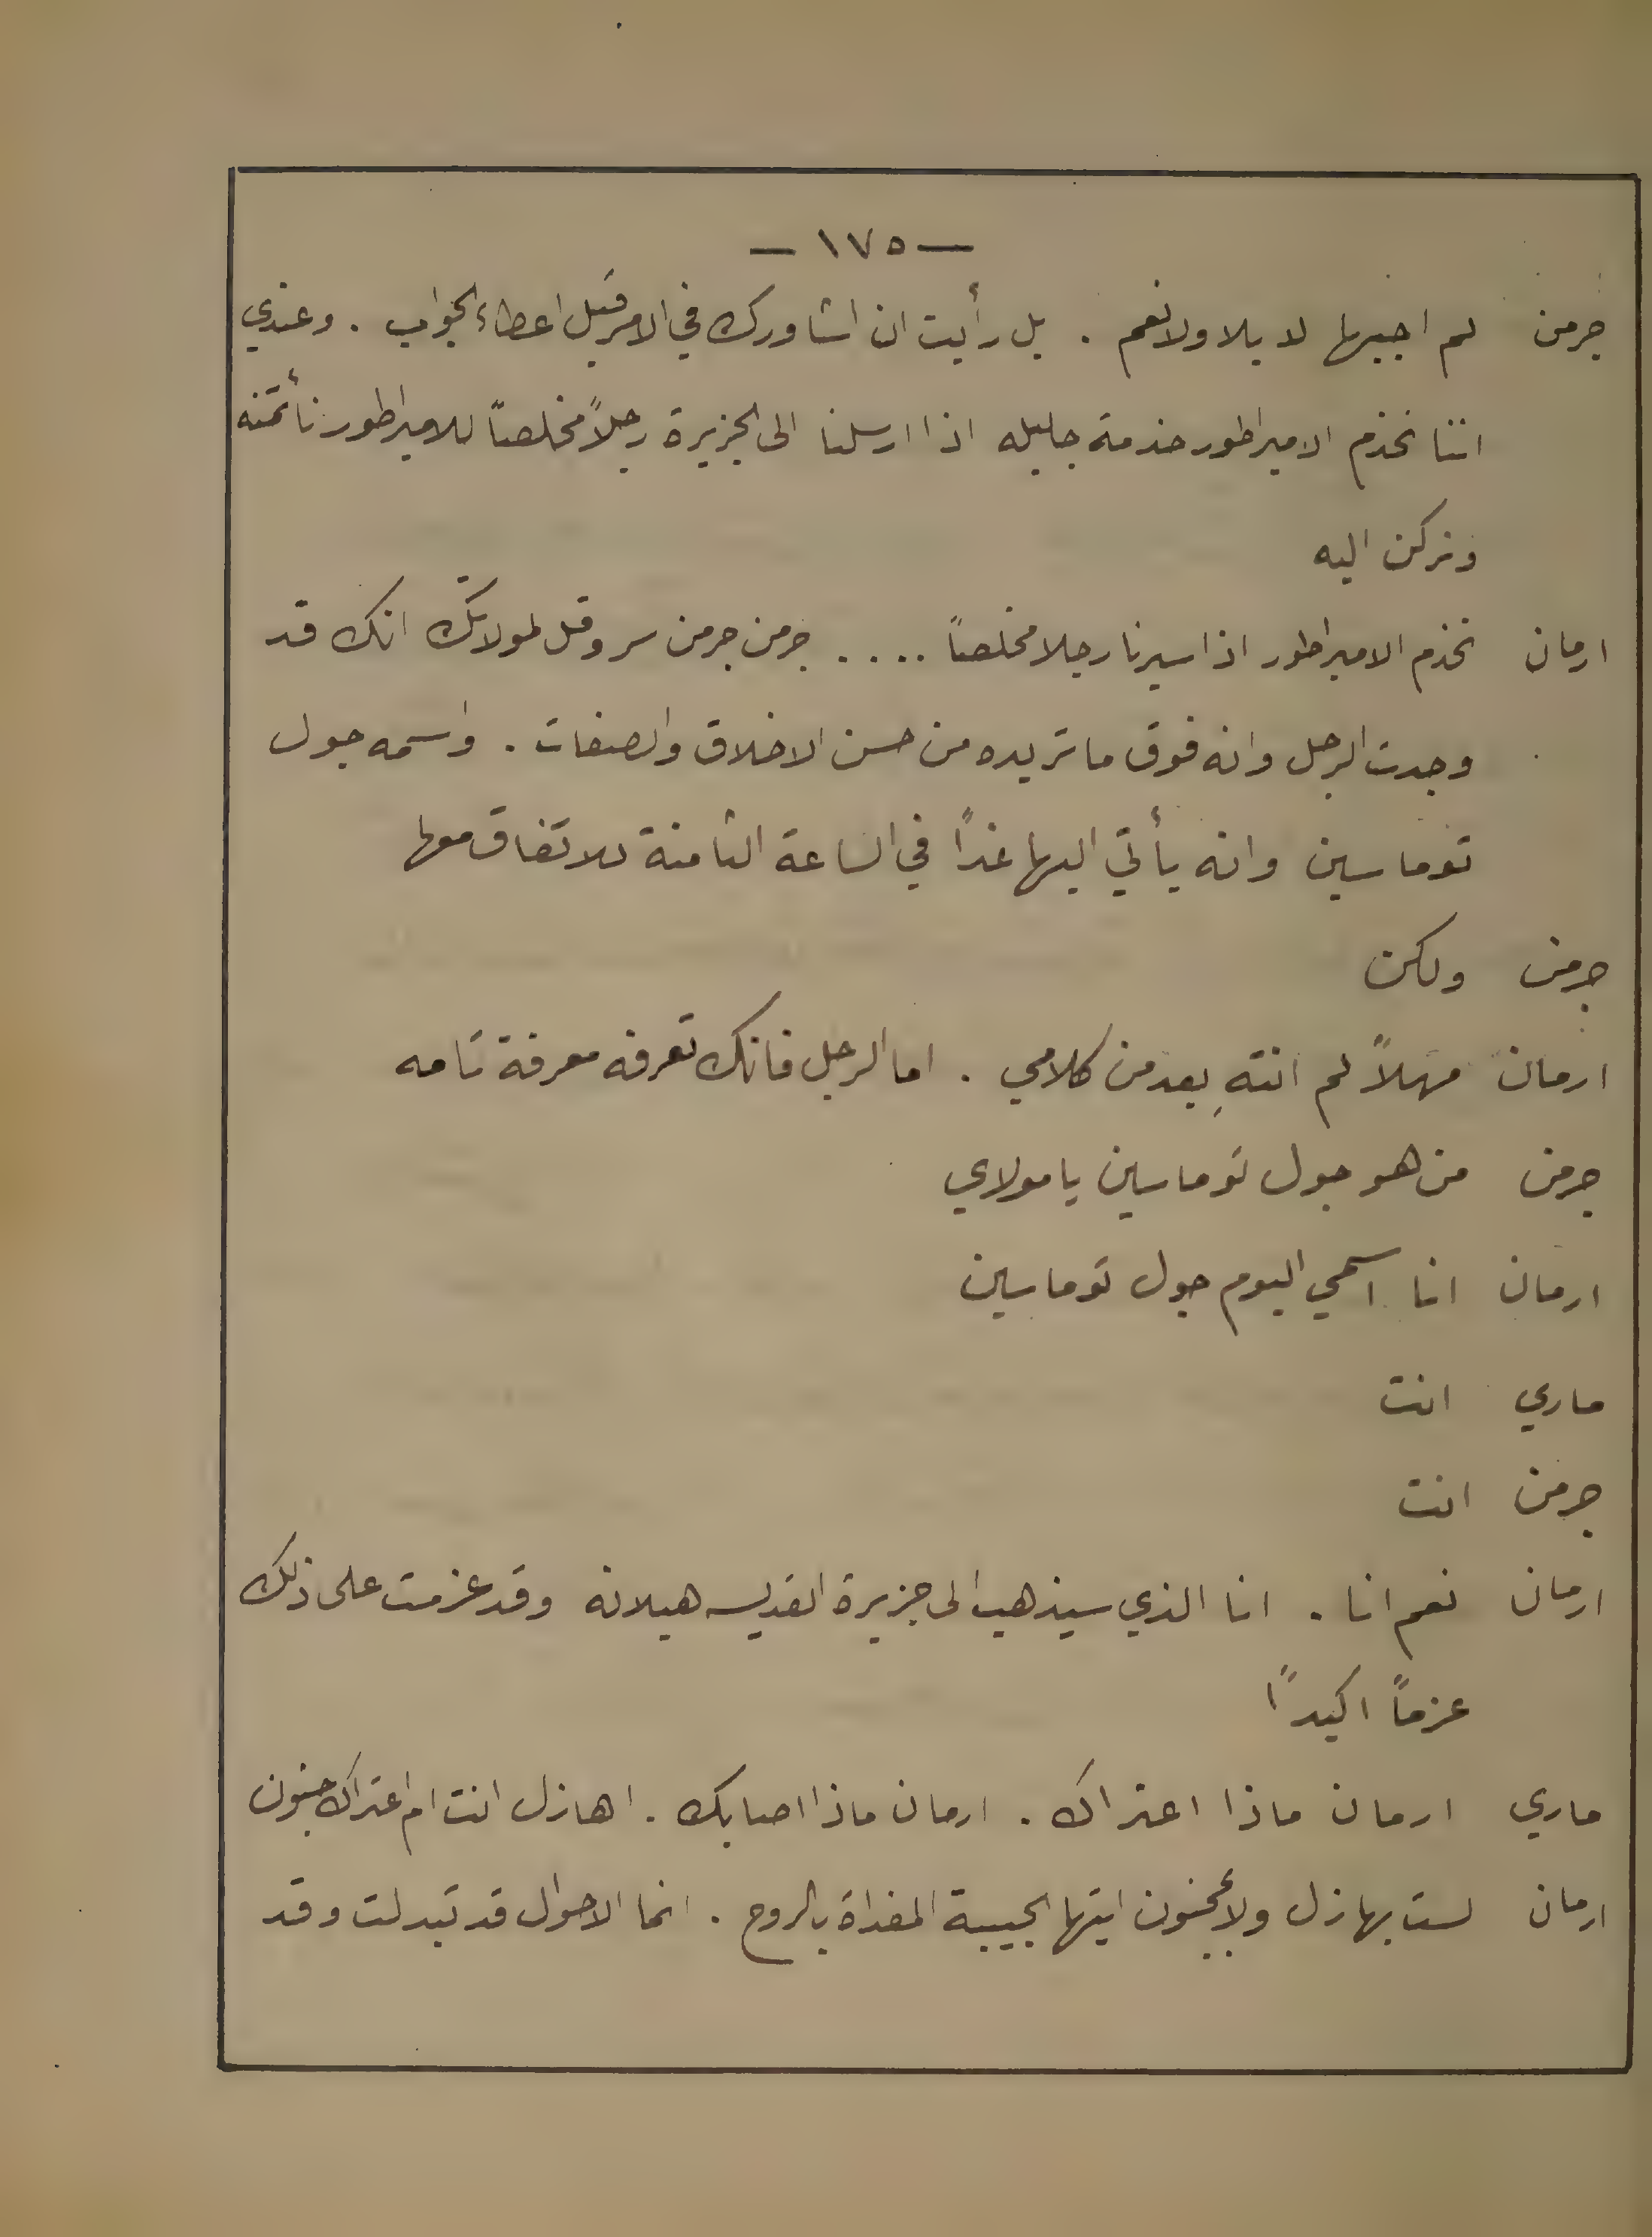 — ١٧٥ —
جرمن لم اجبها لا بلا ولا نعم . بل رأيت ان اشاورك في الامر قبل اعطاء الجواب . وعندي
اننا نخدم الامبراطور خدمة جليله اذا ارسلنا الى الجزيرة رجلاً مخلصاً للامبراطور نأتمنه
ونركن اليه
ارمان نخدم الامبراطور اذا سيرنا رجلا مخلصاً .... جرمن جرمن سر وقل لمولاتك انك قد
وجدت الرجل وانه فوق ما تريده من حسن الاخلاق والصفات . واسمه جول
توماسين وانه يأتي اليها غداً في الساعة الثامنة للاتفاق معها
جرمن ولكن
ارمان مهلاً لم انتهِ بعد من كلامي . اما الرجل فانك تعرفه معرفة تامه
جرمن من هو جول توماسين يا مولاي
ارمان انا اسمي اليوم جول توماسين
ماري انت
جرمن انت
ارمان نعم انا . انا الذي سيذهب الى جزيرة القديسه هيلانه وقد عزمت على ذلك
عزماً اكيداً
ماري ارمان ماذا اعتراك . ارمان ماذا اصابك . اهازل انت ام اعتراك جنون
ارمان لست بهازل ولا بمجنون ايتها الحبيبة المفداة بالروح . انما الاحوال قد تبدلت وقد